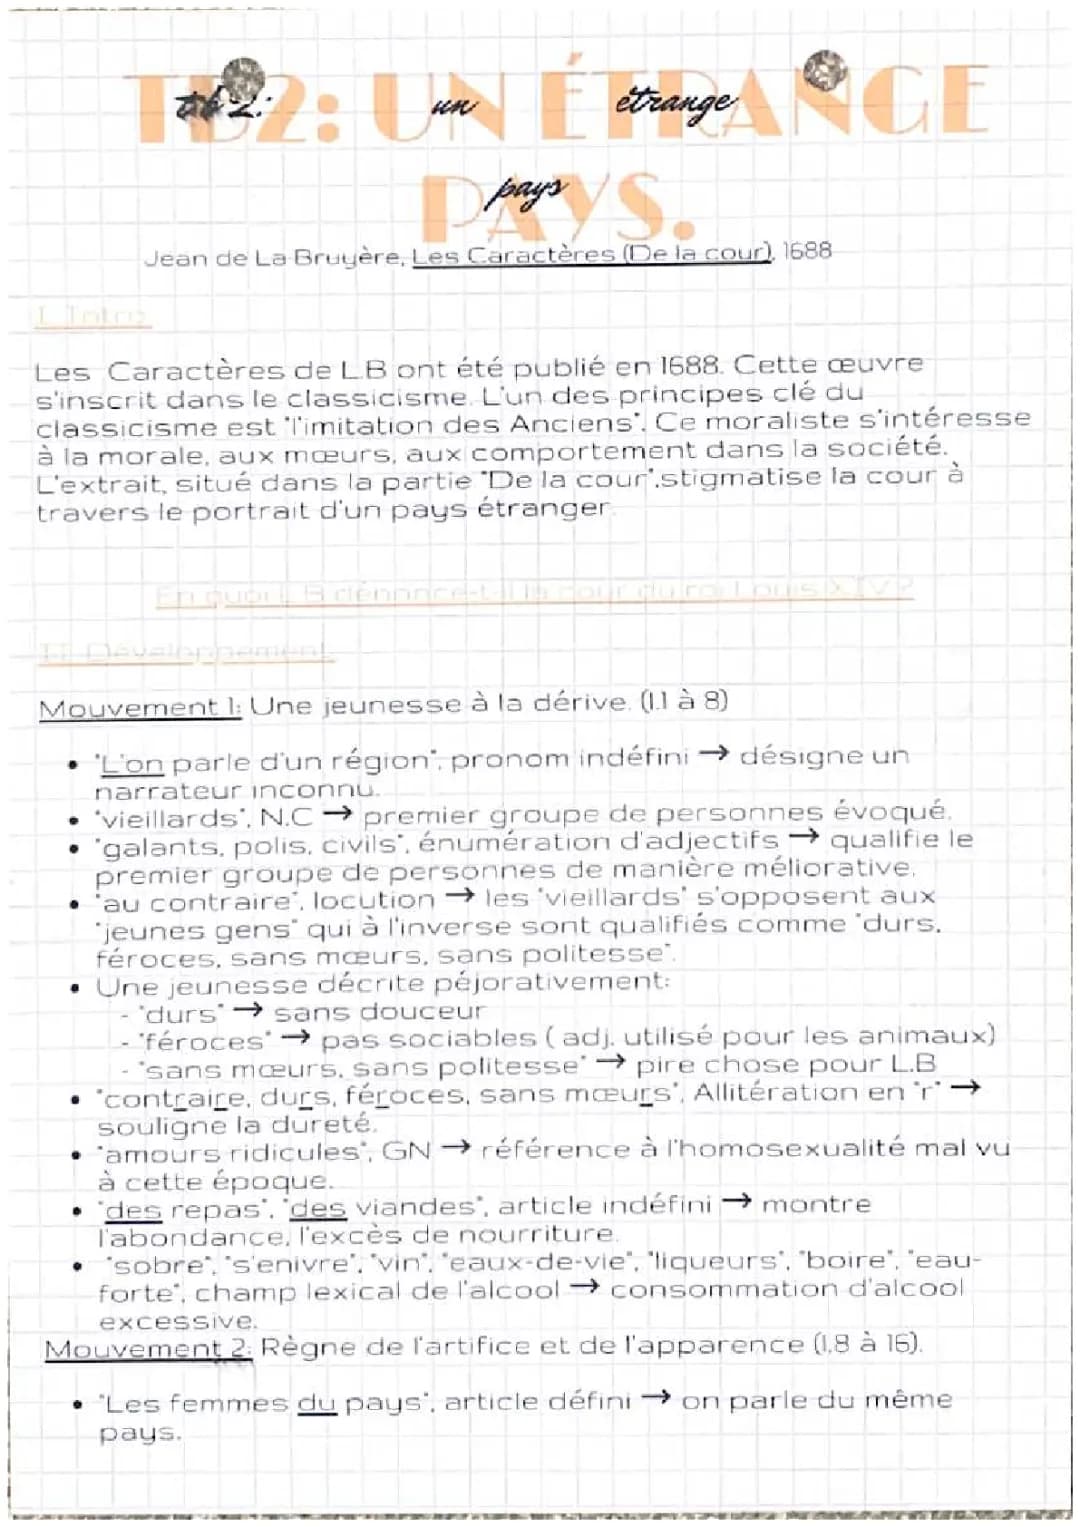 TL2: UN ÉTRANGE
un étrange
PAYS.
pays
Jean de La Bruyère, Les Caractères (De la cour), 1688
I. Intro:
Les Caractères de LB ont été publié en 1688. Cette œuvre
s'inscrit dans le classicisme. L'un des principes clé du
classicisme est "l'imitation des Anciens". Ce moraliste s'intéresse
à la morale, aux mœurs, aux comportement dans la société.
L'extrait, situé dans la partie "De la cour",stigmatise la cour à
travers le portrait d'un pays étranger.
En quoi LB dénnonce-t-il la cour du roi Louis XIV?
II. Développement:
Mouvement 1: Une jeunesse à la dérive. (l.1 à 8)
• "L'on parle d'un région", pronom indéfini → désigne un
narrateur inconnu.
• "vieillards", N.C → premier groupe de personnes évoqué.
• "galants, polis, civils", énumération d'adjectifs → qualifie le
premier groupe de personnes de manière méliorative.
• "au contraire", locution → les "vieillards" s'opposent aux
"jeunes gens" qui à l'inverse sont qualifiés comme "durs,
féroces, sans mœurs, sans politesse".
• Une jeunesse décrite péjorativement:
- "durs" → sans douceur
- "féroces" → pas sociables ( adj. utilisé pour les animaux)
- "sans mœurs, sans politesse" → pire chose pour L.B
• "contraire, durs, féroces, sans mœurs", Allitération en "r" →
souligne la dureté.
• "amours ridicules", GN → référence à l'homosexualité mal vu
à cette époque.
• "des repas", "des viandes", article indéfini → montre
l'abondance, l'excès de nourriture.
• "sobre", "s'enivre", "vin", "eaux-de-vie", "liqueurs", "boire", "eau-
forte", champ lexical de l'alcool → consommation d'alcool
excessive.
Mouvement 2: Règne de l'artifice et de l'apparence (l.8 à 16).
• "Les femmes du pays", article défini → on parle du même
pays.